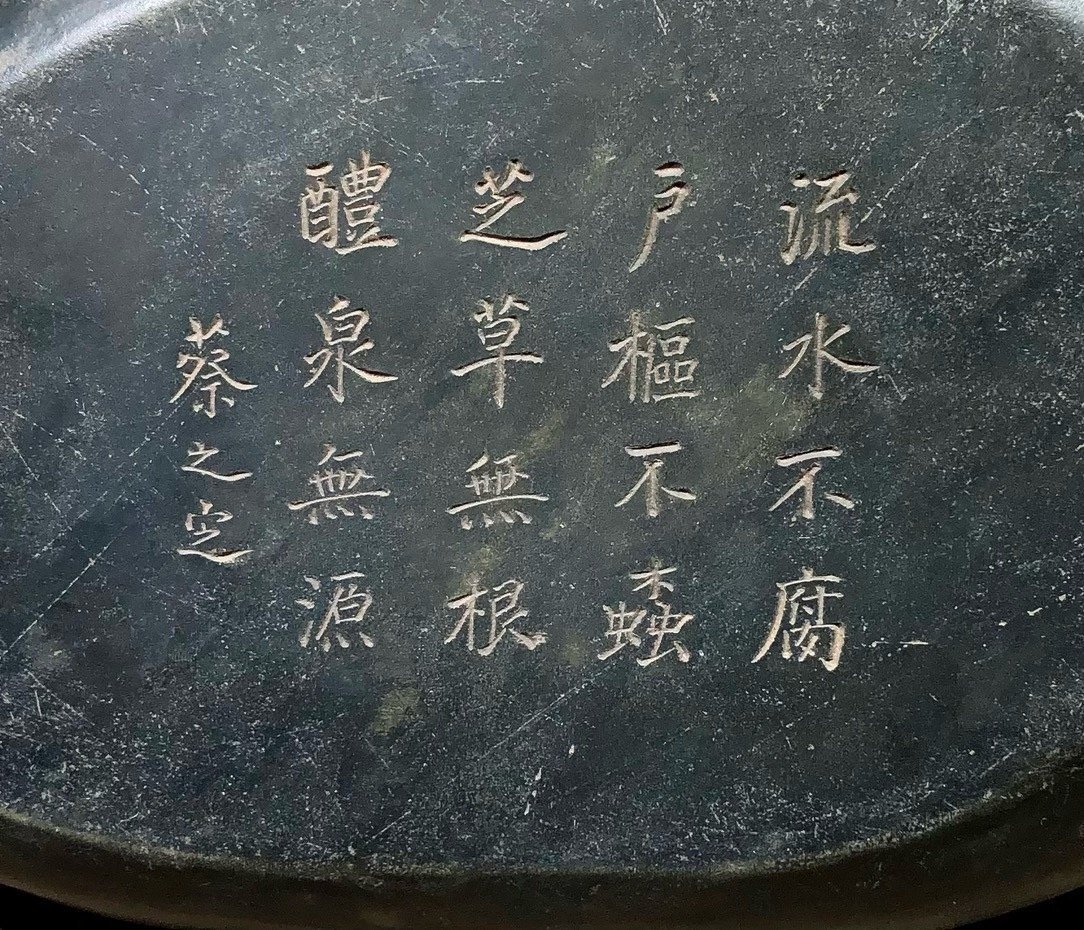 流水不腐
戶樞不螙
芝草無根
醴泉無源
蔡之定